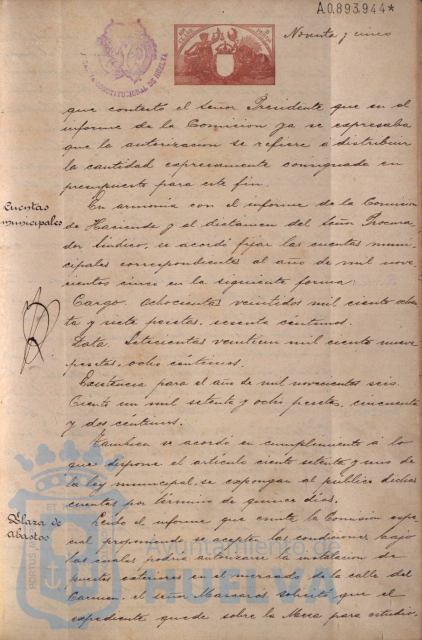 A0.893.944*
Noventa y cinco
CONSTITUCIONAL DE HUELVA
que contestó el Señor Presidente que en el
informe de la Comision ya se expresaba
que la autorizacion se refiere a distribuir
la cantidad expresamente consignada en
presupuesto para este fin.
Cuentas
municipales
En armonia con el informe de la Comision
de Hacienda y el dictamen del Señor Procura-
dor Sindico, se acordó fijar las cuentas muni-
cipales correspondientes al año de mil nove-
cientos cinco en la siguiente forma:
Cargo. Ochocientas veintidos mil ciento ochen-
ta y siete pesetas, sesenta céntimos.
Data. Setecientas veintiun mil ciento nueve
pesetas, ocho céntimos.
Existencia para el año de mil novecientos seis.
Ciento un mil setenta y ocho pesetas, cincuenta
y dos céntimos.
Tambien se acordó en cumplimiento á lo
que dispone el artículo ciento setenta y uno de
la ley municipal, se expongan al público dichas
cuentas por término de quince dias.
Plaza de
abastos
Leido el informe que emite la Comision espe-
cial proponiendo se acepten las condiciones bajo
las cuales podria autorizarse la instalacion de
puestos exteriores en el mercado de la calle del
Carmen, el señor solicitó que el
expediente quede sobre la Mesa para estudio.
Ayuntamiento de
HUELVA